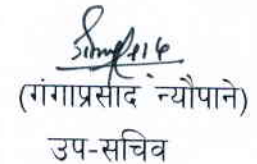 (गंगाप्रसाद न्यौपाने)
उप-सचिव